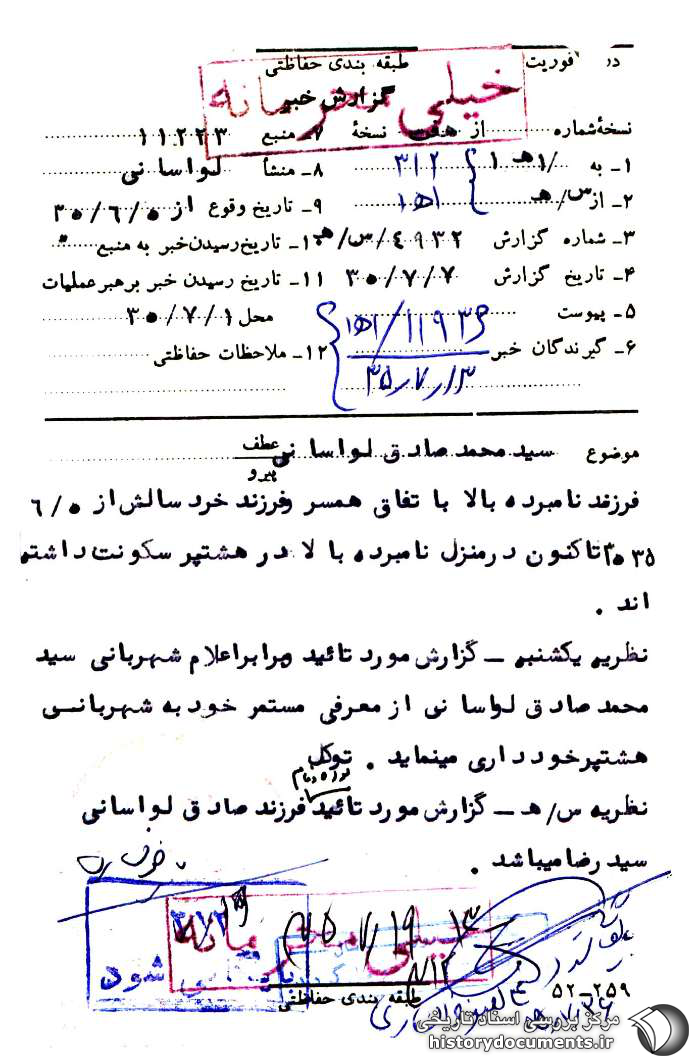 فوریت طبقه بندی حفاظتی
خیلی محرمانه
گزارش خبر
نسخهٔ شماره از هفت نسخهٔ ۷ـ منبع ۱۱۲۲۳
۱ـ به ۱/هـ ۱ ۳۱۲ ۸ـ منشأ لواسانی
۲ـ از س/هـ ۱ه۱ ۹ـ تاریخ وقوع از ۳۰/۶/۰
۳ـ شماره گزارش ۴۹۳۲/س/هـ ۱۰ـ تاریخ رسیدن خبر به منبع
۴ـ تاریخ گزارش ۳۰/۷/۷ ۱۱ـ تاریخ رسیدن خبر برهبر عملیات
۵ـ پیوست محل ۳۰/۷/۱
۶ـ گیرندگان خبر ۱۲ـ ملاحظات حفاظتی
۳۵/۷/۱۳
موضوع سید محمد صادق لواسانی عطف
پیرو
فرزند نامبرده بالا با تفاق همسر و فرزند خرد سالش از ۶/۰
۳۰۳۵ تاکنون در منزل نامبرده بالا در هشتپر سکونت داشته
اند .
نظریه یکشنبه ـ گزارش مورد تائید و برابر اعلام شهربانی سید
محمد صادق لواسانی از معرفی مستمر خود به شهربانی
هشتپر خودداری مینماید . توکل
نظریه س/هـ ـ گزارش مورد تائید فرزند صادق لواسانی
سید رضا میباشد .
خیلی محرمانه
شود
طبقه بندی حفاظتی
۵۲ـ۲۵۹
مرکز بررسی اسناد تاریخی
historydocuments.ir